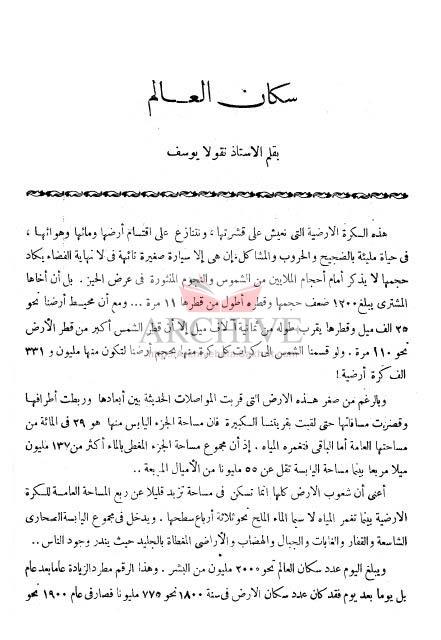 سكان العـــالم
بقلم الاستاذ نقولا يوسف
هذه الكرة الارضية التى نعيش على قشرتها ، ونتنازع على اقتسام أرضها ومائها وهوائها ،
فى حياة مليئة بالضجيج والحروب والمشاكل ، إن هى إلا سيارة صغيرة تائهة فى لا نهاية الفضاء يكاد
حجمها لا يذكر أمام أحجام الملايين من الشموس والنجوم المنثورة فى عرض الحيز . بل أن أخاها
المشترى يبلغ ١٢٠٠ ضعف حجمها وقطره أطول من قطرها ١١ مرة ... ومع أن محيط أرضنا نحو
٢٥ الف ميل وقطرها يقرب طوله من ثمانية آلاف ميل إلا أن قطر الشمس أكبر من قطر الأرض
نحو ١١٠ مرة . ولو قسمنا الشمس الى كرات كل كرة منها بحجم أرضنا لتكون منها مليون و ٣٣١
الف كرة أرضية !
ARCHIVE
وبالرغم من صغر هذه الارض التى قربت المواصلات الحديثة بين أبعادها وربطت أطرافها
وقصرت مسافاتها حتى لقبت بقريتنا الكبيرة فان مساحة الجزء اليابس منها هو ٢٩ فى المائة من
مساحتها العامة أما الباقى فتغمره المياه . إذ أن مجموع مساحة الجزء المغطى بالماء أكثر من ١٣٧ مليون
ميلا مربعا بينما مساحة اليابسة تقل عن ٥٥ مليونا من الأميال المربعة ..
أعنى أن شعوب الارض كلها انما تسكن فى مساحة تزيد قليلا عن ربع المساحة العامة للكرة
الارضية بينما تغمر المياه لا سيما الماء الملح نحو ثلاثة أرباع سطحها . ويدخل فى مجموع اليابسة الصحارى
الشاسعة والقفار والغابات والجبال والهضاب والأراضى المغطاة بالجليد حيث يندر وجود الناس ..
ويبلغ اليوم عدد سكان العالم نحو ٢٠٠٠ مليون من البشر . وهذا الرقم مطرد الزيادة عاما بعد عام
بل يوما بعد يوم فقد كان عدد سكان الارض فى سنة ١٨٠٠ نحو ٧٧٥ مليونا فصار فى عام ١٩٠٠ نحو